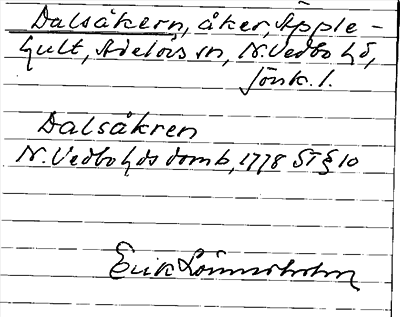 Dalsåkern, åker, Äpple-
hult, Adelövs sn, N. Vedbo hd,
Jönk. l.
Dalsåkren
N. Vedbo hds domb, 1778 ST § 10
Erik Lönnerholm